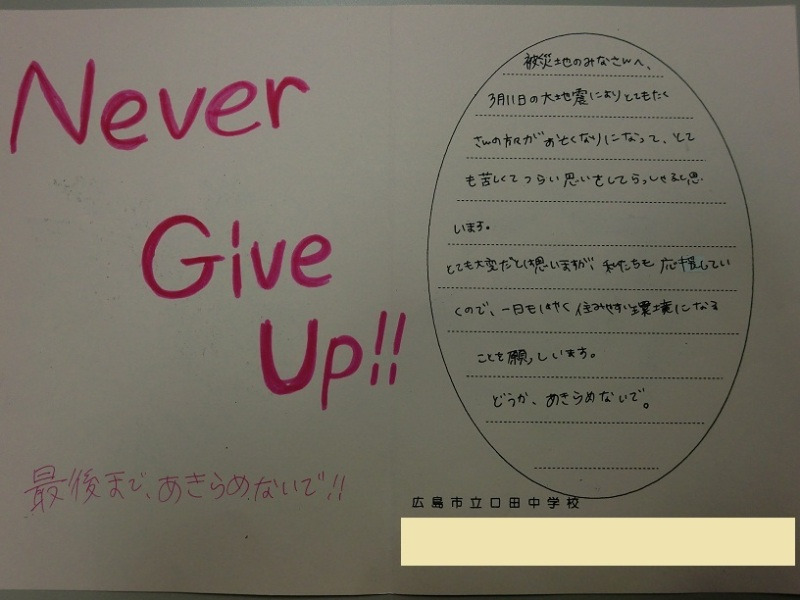 Never
Give
Up!!
最後まで、あきらめないで!!
被災地のみなさんへ、
3月11日の大地震によりとてもたく
さんの方々がお亡くなりになって、とて
も苦しくてつらい思いをしてらっしゃると思
います。
とても大変だとは思いますが、私たちも応援してい
くので、一日もはやく住みやすい環境になる
ことを願っしいます。
どうか、あきらめないで。
広島市立口田中学校